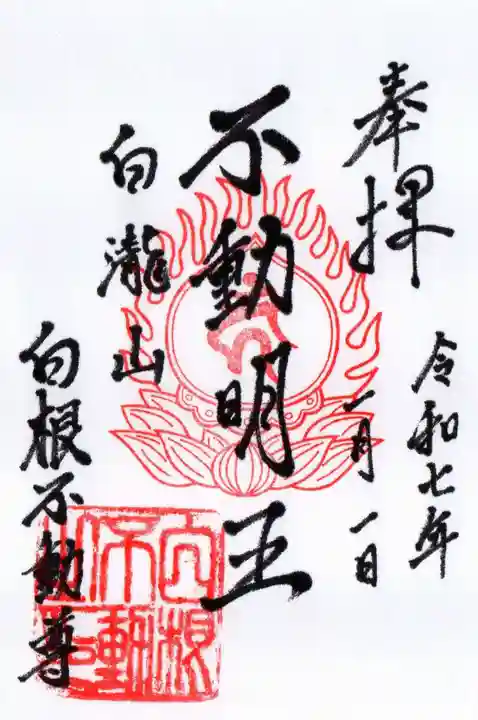 奉拝
令和七年
一月一日
不動明王
白瀧山
白根不動尊
白根不動